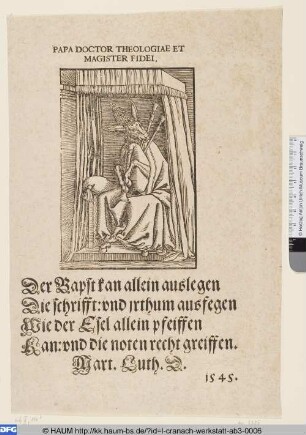 PAPA DOCTOR THEOLOGIAE ET
MAGISTER FIDEI,
Der Bapst kan allein auslegen
Die schrifft: vnd jrthum ausfegen
Wie der Esel allein pfeiffen
Kan: vnd die noten recht greiffen.
Mart. Luth. D.
1545.
© Herzog Anton Ulrich-Museum Braunschweig
DFG
© HAUM http://kk.haum-bs.de/?id=l-cranach-werkstatt-ab3-0006